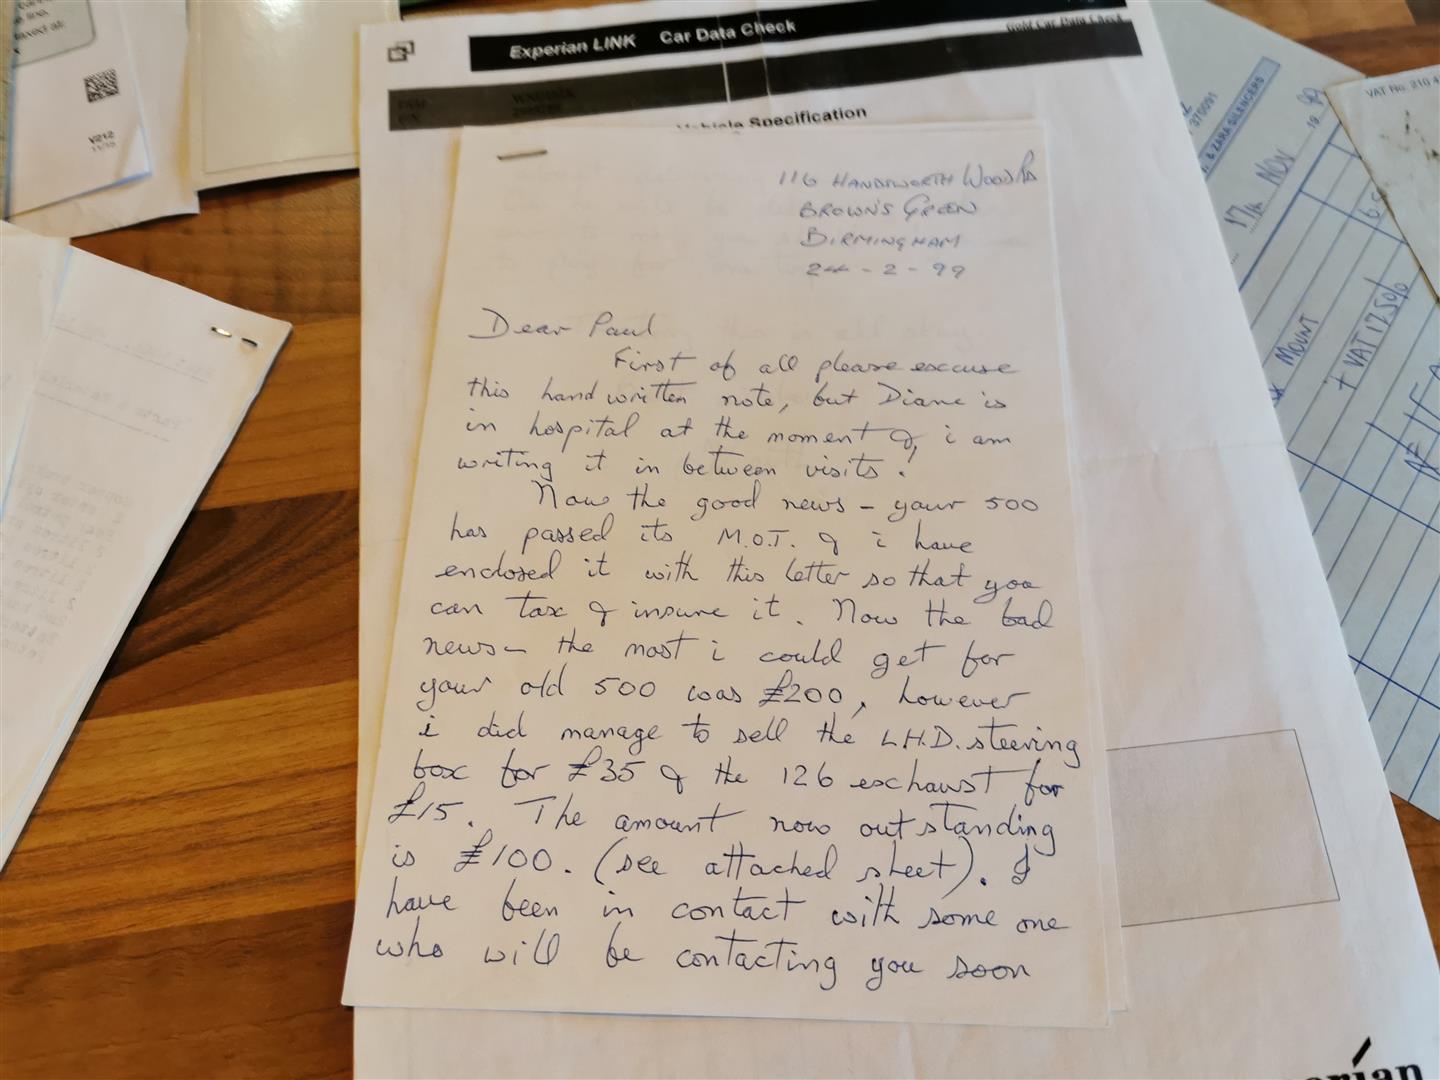 Experian LINK Car Data Check
Gold Car Data Check
Vehicle Specification
116 HANDSWORTH WOOD RD
BROWN'S GREEN
BIRMINGHAM
24-2-99
Dear Paul
First of all please excuse
this hand written note, but Diane is
in hospital at the moment & i am
writing it in between visits!
Now the good news – your 500
has passed its M.O.T. & i have
enclosed it with this letter so that you
can tax & insure it. Now the bad
news – the most i could get for
your old 500 was £200, however
i did manage to sell the L.H.D. steering
box for £35 & the 126 exhaust for
£15. The amount now outstanding
is £100. (see attached sheet). I
have been in contact with some one
who will be contacting you soon
V212
11/10
370091
& ZARA SILENCERS
17th NOV
MOUNT
+ VAT 17.50%
VAT No. 210 4